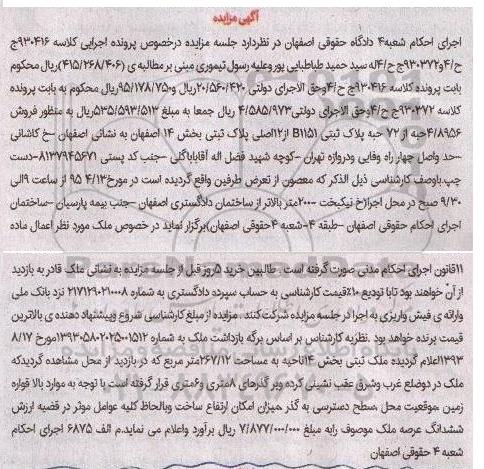 آگهی مزایده
اجرای احکام شعبه۴ دادگاه حقوقی اصفهان در نظردارد جلسه مزایده درخصوص پرونده اجرایی کلاسه ۹۳۰۴۱۶ج
ح/۴و۹۳۰۳۷۲ج ح/۴له سید حمید طباطبایی پور وعلیه رسول تیموری مبنی بر مطالبه ی (۴۱۵/۲۶۸/۴۰۶)ریال محکوم
بابت پرونده کلاسه ۹۳۰۴۱۶ج ح/۴وحق الاجرای دولتی ۲۰/۵۶۰/۴۲۰ریال و۹۵/۱۷۸/۷۵۰ریال محکوم به بابت پرونده
کلاسه ۹۳۰۳۷۲ج ح/۴وحق الاجرای دولتی۴/۵۸۵/۹۷۳ ریال جمعا به مبلغ ۵۳۵/۵۹۳/۵۱۳ریال به منظور فروش
۴/۸۹۵۶حبه از ۷۲ حبه پلاک ثبتی B۱۱۵۱ از۱۲اصلی پلاک ثبتی بخش ۱۴ اصفهان به نشانی اصفهان -خ کاشانی
-حد واصل چهار راه وفایی ودروازه تهران -کوچه شهید فضل اله آقاباباگلی -جنب کد پستی ۸۱۳۷۹۴۵۶۷۱-دست
چپ.باوصف کارشناسی ذیل الذکر که معصون از تعرض طرفین واقع گردیده است در مورخ۹۵/۴/۱۳ از ساعت ۹الی
۹/۳۰ صبح در محل اجرا(خ نیکبخت -۲۰۰متر بالاتر از ساختمان دادگستری اصفهان -جنب بیمه پارسیان -ساختمان
اجرای احکام حقوقی اصفهان -طبقه ۴-شعبه ۴حقوقی اصفهان)برگزار نماید در خصوص ملک مورد نظر اعمال ماده
۱۱قانون اجرای احکام مدنی صورت گرفته است . طالبین خرید ۵روز قبل از جلسه مزایده به نشانی ملک قادر به بازدید
از آن خواهند بود تابا تودیع ۱۰٪قیمت کارشناسی به حساب سپرده دادگستری به شماره ۲۱۷۱۲۹۰۲۱۰۰۰۸ نزد بانک ملی
وارائه ی فیش واریزی به اجرا در جلسه مزایده شرکت کنند . مزایده از مبلغ کارشناسی شروع وپیشنهاد دهنده ی بالاترین
قیمت برنده خواهد بود .نظریه کارشناس بر اساس برگه بازداشت ملک به شماره ۱۳۹۳۰۵۸۰۲۰۲۵۰۰۱۵۱۲مورخ ۸/۱۷
۱۳۹۳اعلام گردیده ملک ثبتی بخش ۱۴ناحیه به مساحت ۲۶۷/۱۲متر مربع که در بازدید از محل مشاهده گردیدکه
ملک در دوضلع غرب وشرق عقب نشینی کرده وبر گذرهای ۸متری و۶متری قرار گرفته است با توجه به موارد بالا قواره
زمین موقعیت محل ،سطح دسترسی به گذر ،میزان امکان ارتفاع ساخت وبالحاظ کلیه عوامل موثر در قضیه ارزش
ششدانگ عرصه ملک موصوف رابه مبلغ ۷/۸۷۷/۰۰۰/۰۰۰ ریال برآورد واعلام می نماید.م الف ۶۸۷۵ اجرای احکام
شعبه ۴ حقوقی اصفهان